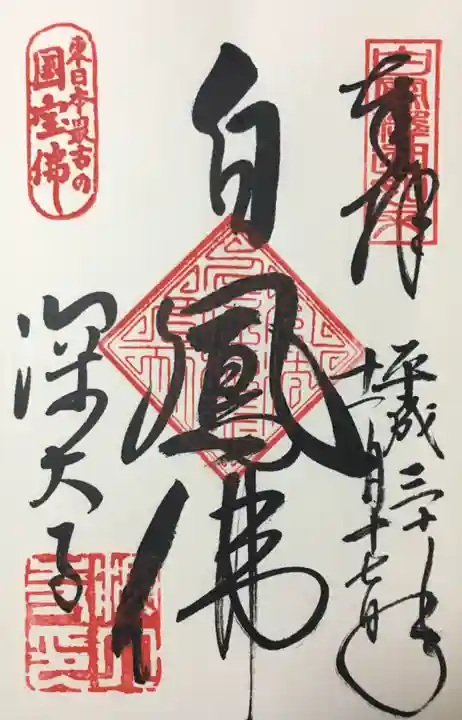 奉拝
平成三十年
十一月十七日
白鳳佛
東日本最古の
國宝佛
深大寺